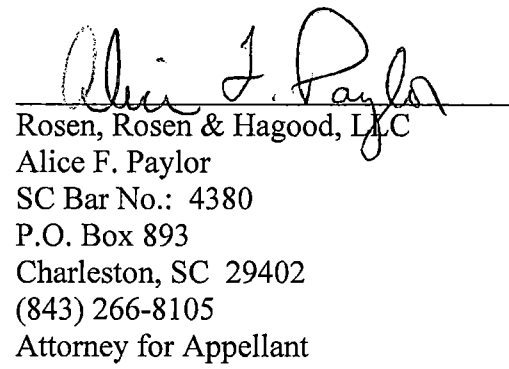 Alice F. Paylor
Rosen, Rosen & Hagood, LLC
Alice F. Paylor
SC Bar No.: 4380
P.O. Box 893
Charleston, SC 29402
(843) 266-8105
Attorney for Appellant